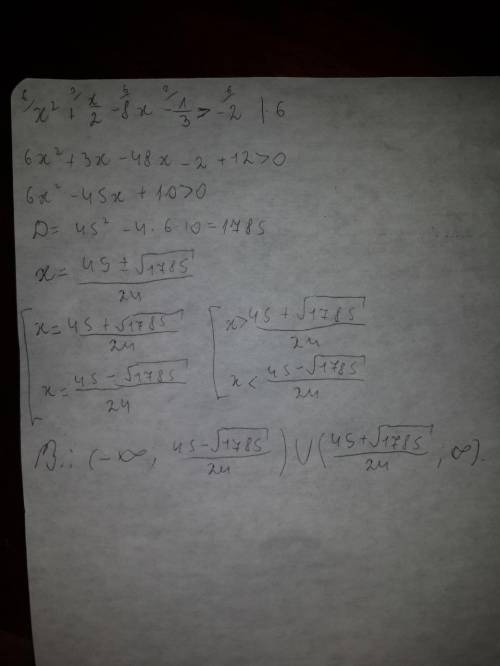 6/ x² 3/ + x/2 6/ - 8x 2/ - 1/3 > 6/ -2 | · 6
6x² + 3x - 48x - 2 + 12 > 0
6x² - 45x + 10 > 0
D = 45² - 4 · 6 · 10 = 1785
x = (45 ± √1785)/24
[ x = (45 + √1785)/24 [ x > (45 + √1785)/24
x = (45 - √1785)/24 x < (45 - √1785)/24
В.: (-∞, (45 - √1785)/24) ∪ ((45 + √1785)/24; ∞).